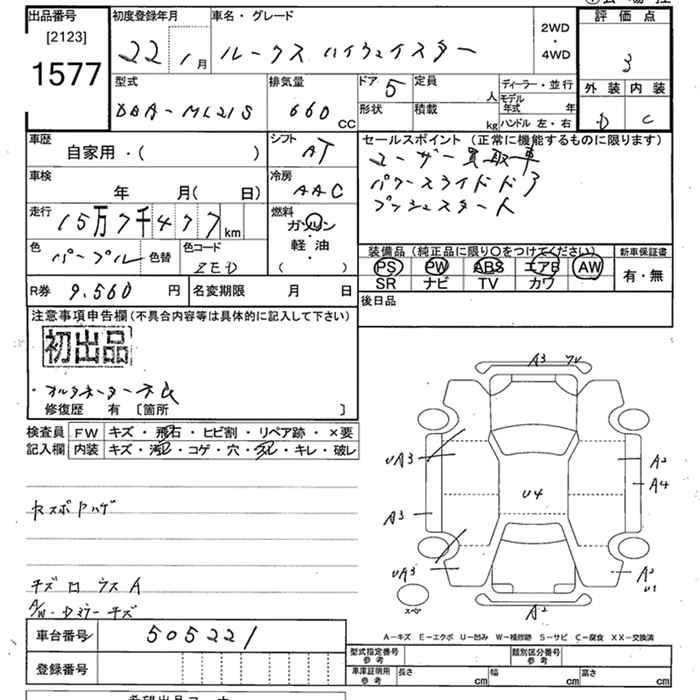 出品番号 初度登録年月 車名・グレード 評価点
[2123]
1577
22年 1月 ルークス ハイウェイスター 2WD・4WD 3
型式 排気量 ドア 5 定員 人 ディーラー・並行 外装 内装
DBA-ML21S 660 CC 形状 積載 kg モデル年式 年 ハンドル 左・右 D C
車歴 シフト セールスポイント(正常に機能するものに限ります)
自家用・( ) AT ユーザー買取車
車検 冷房 パワースライドドア
年 月( 日) AAC プッシュスタート
走行 燃料
15万7千477 km ガソリン・軽油・( )
色 色替 色コード 装備品(純正品に限り○をつけてください) 新車保証書
パープル ZED PS PW ABS エアB AW 有・無
SR ナビ TV カワ
R券 9.560 円 名変期限 月 日 後日品
注意事項申告欄(不具合内容等は具体的に記入して下さい)
初出品
・オルタネーター不良
修復歴 有 [箇所 ]
検査員 FW キズ・飛石・ヒビ割・リペア跡・×要
記入欄 内装 キズ・汚レ・コゲ・穴・スレ・キレ・破レ
A3
UA3 A2
A4
U4
A3
UA3 A2
U1
A2
スペ
キズ口 ウスA
A/W・Dミラーキズ
A-キズ E-エクボ U-凹み W-補修跡 S-サビ C-腐食 XX-交換済
車台番号 505221
登録番号
型式指定番号 参考 類別区分番号 参考
車庫証明用 参考 長さ cm 幅 cm 高さ cm